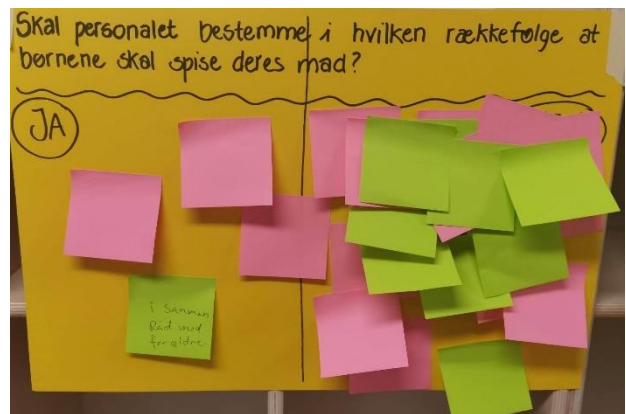 Skal personalet bestemme i hvilken rækkefølge at
børnene skal spise deres mad?
JA
i samman
Råd med
forældre